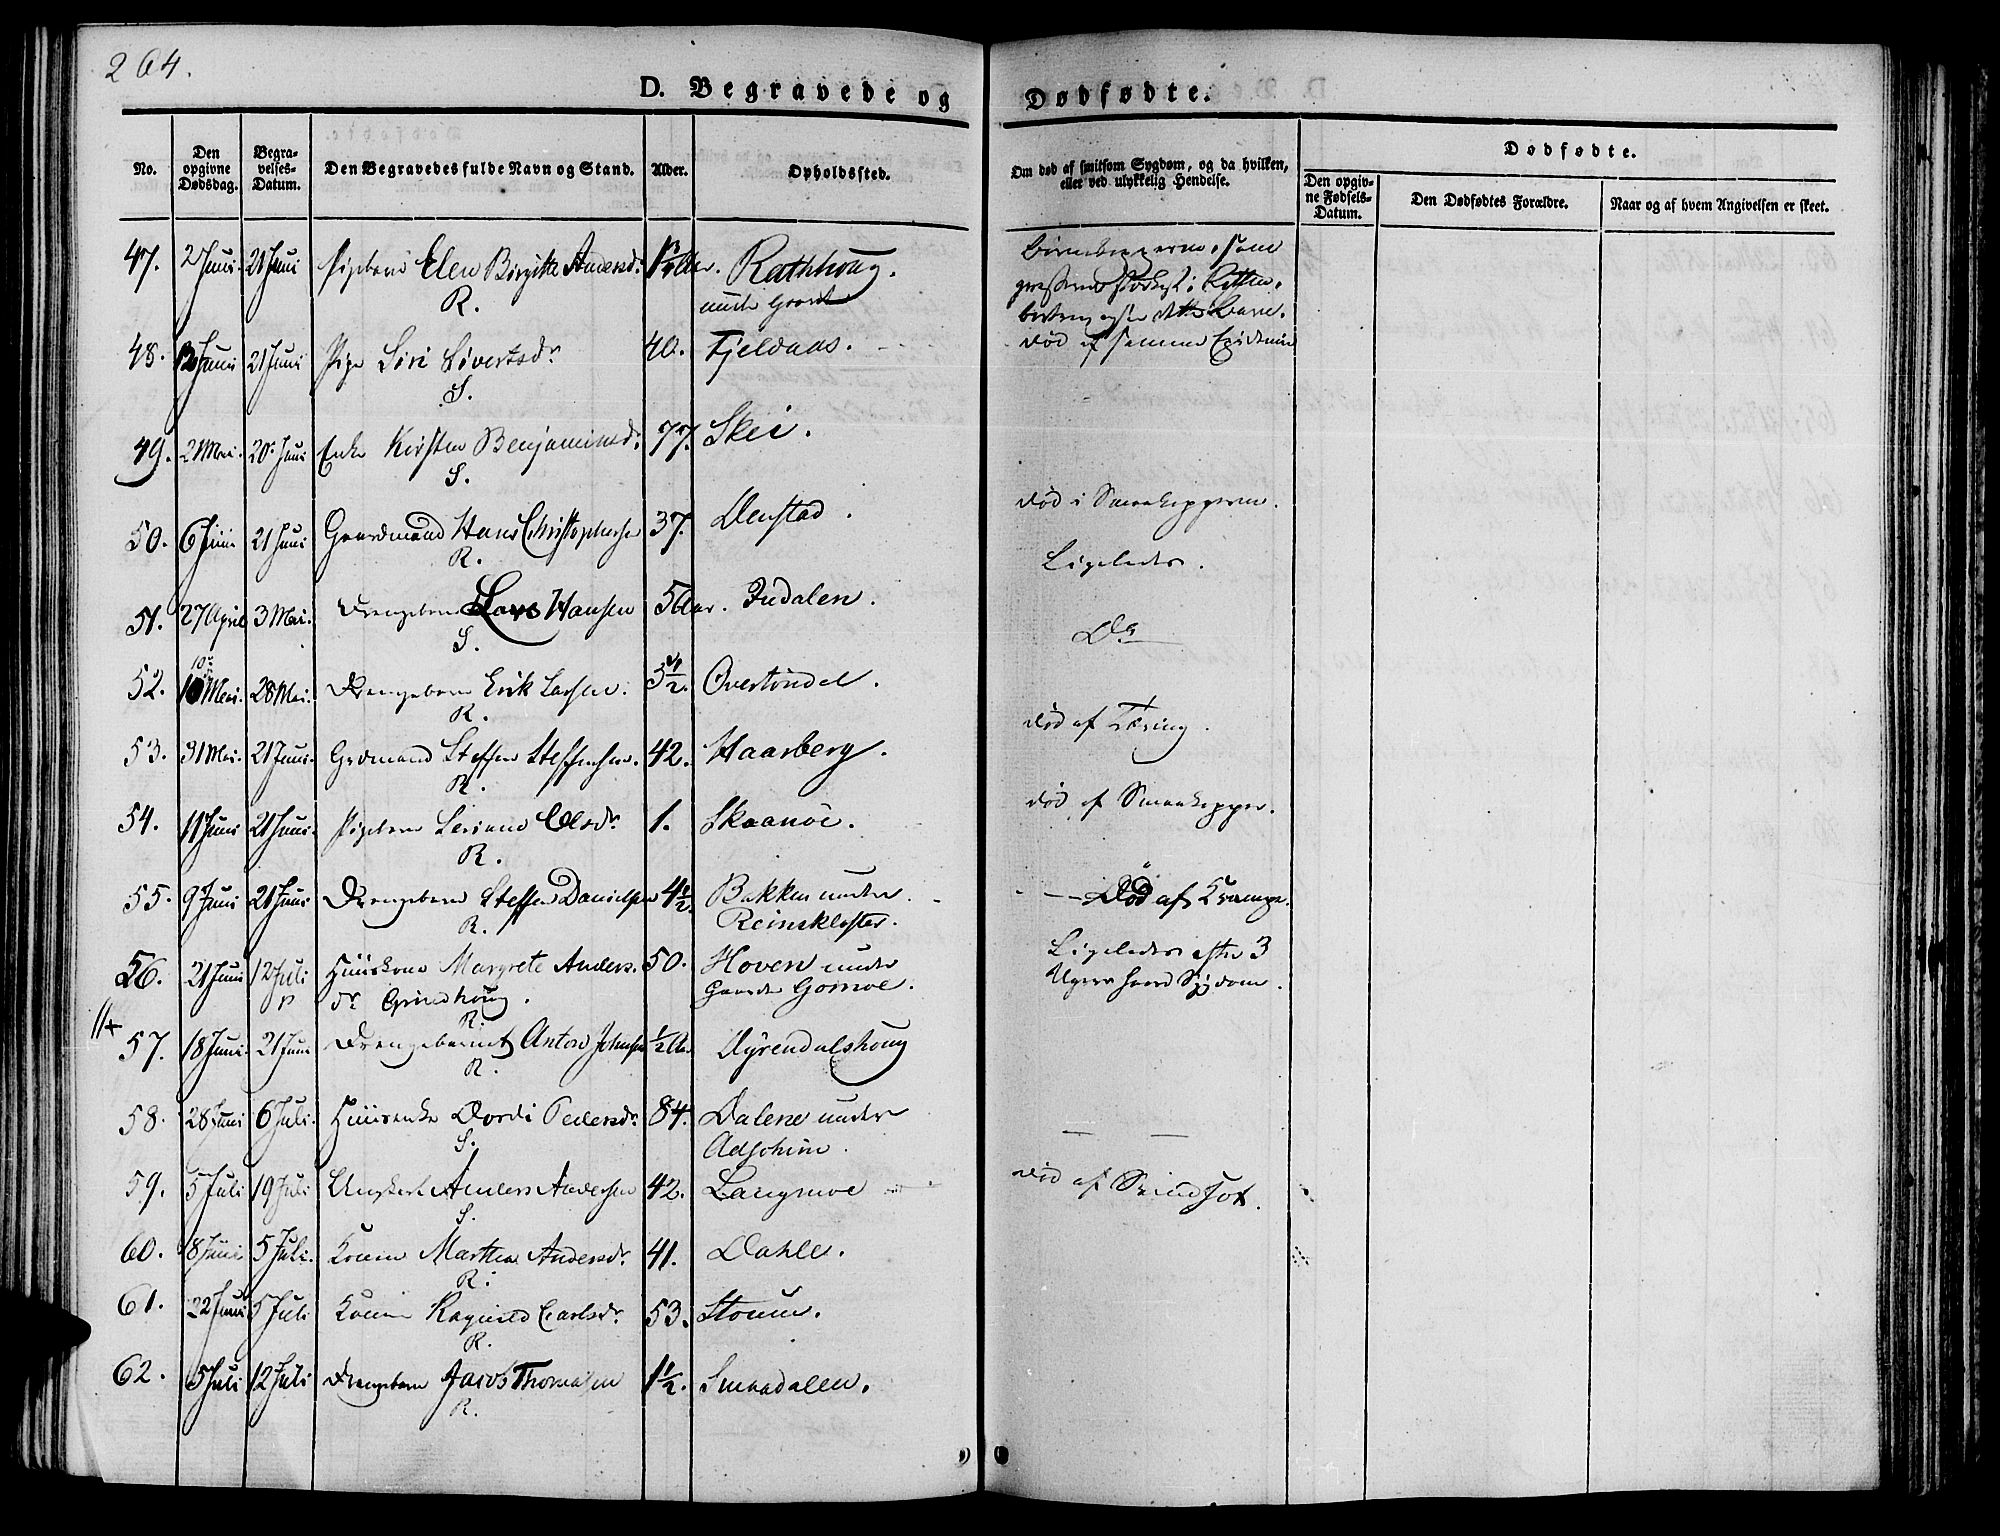 264.
D. Begravede og Dødfødte.
No.
Den opgivne Dødsdag.
Begravelses-Datum.
Den Begravedes fulde Navn og Stand.
Alder.
Opholdssted.
Om død af smitsom Sygdom, og da hvilken, eller ved ulykkelig Hendelse.
Dødfødte.
Den opgivne Fødsels-Datum.
Den Dødfødtes Forældre.
Naar og af hvem Angivelsen er skeet.
47. 2 Juni 21 Juni Pigebarn Elen Birgitte Andersdr. Rathhoug.
R. under Gaard
48. Juni 21 Juni Pige Siri Sivertsdr 40. Fjeldaas. død af samme Epidemie
S.
49. 2 Mai. 20 Juni Enke Kirsten Benjaminsdr 77. Skei.
S.
50. 6 Juni 21 Juni Gaardmand Hans Christophersen 37. Denstad. død i Smaakopperne.
R. Ligeledes.
51. 27 April 3 Mai. Drengebarn Lars Hansen 5 Aar. Indalen.
S. Do
52. 10 Mai. 28 Mai. Drengebarn Erik Larsen. 5 1/2. Overtindel.
R.
53. 31 Mai. 21 Juni. Grdmand Steffen Steffensen. 42. Haarberg. død af Tæring.
R.
54. 11 Juni 21 Juni. Pigebarn Olsdr. 1. Skaanöe. død af Smaakopper.
R.
55. 9 Juni 21 Juni Drengebarn Steffen Danielsen 4 1/2 Bakken under Død af Krampe.
R. Reinskloster.
56. 21 Juni 12 Juli Huuskone Margrete Anders- 50. Hoven under Ligeledes efter 3
dr Grindhoug. Gaarden Gomoe. Ugers haard Sygdom.
R.
57. 18 Juni. 21 Juni Drengebarnet Anton Johnsen 1/2 A. Dyrendalshoug
R.
58. 28 Juni 6 Juli. Huusenke Dordi Pedersdr. 84. Dalene under
S.
59. 5 Juli 19 Juli Ungkarl Anders Andersen 42. Langmoe død af
S.
60. 18 Juni. 5 Juli. Konen Marthe Andersdr. 41. Dahle.
R.
61. 22 Juni 5 Juli Konen Ragnild Carlsdr. 53.
R.
62. 5 Juli 12 Juli Drengebarn Jacob Thomasen 1 1/2. Smaadalen.
R.